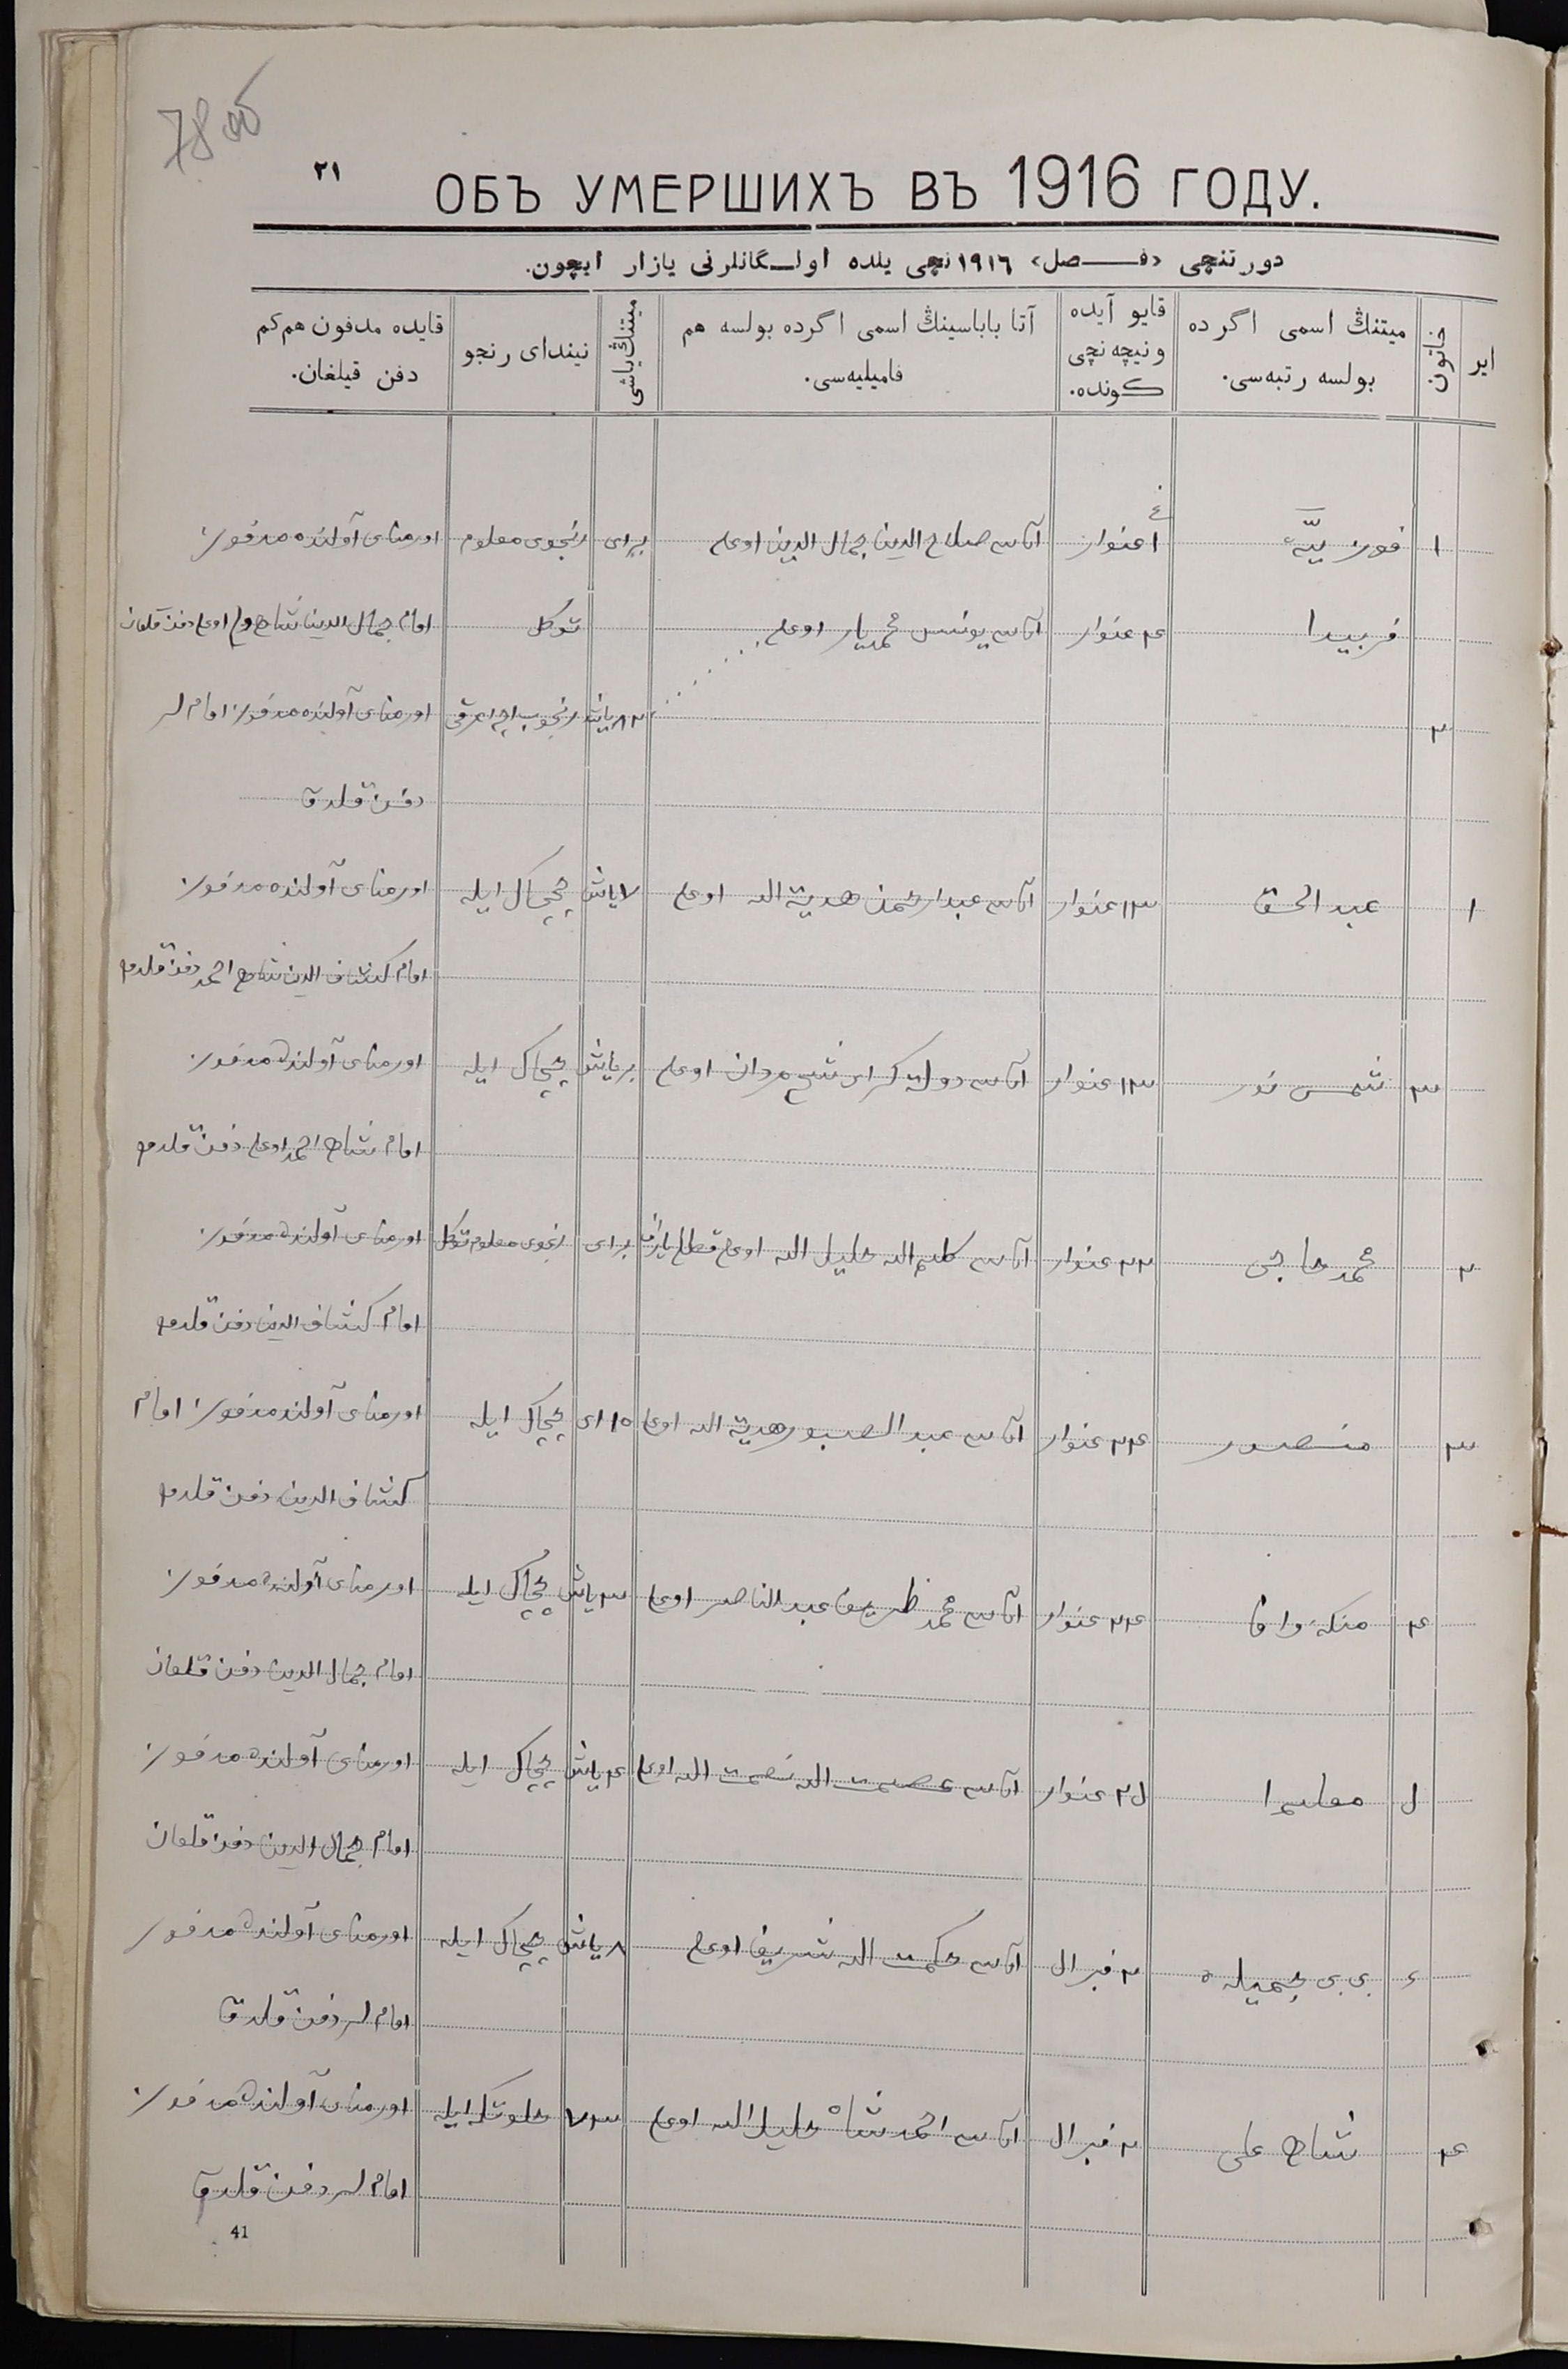 78 об
٢١
ОБЪ УМЕРШИХЪ ВЪ 1916 ГОДУ.
دورتنچی «فـــصل» ١٩١٦نچی یلده اولـگانلرنی یازار ایچون.
ایر
خاتون
میتنڭ اسمی اگرده بولسه رتبه‌سی.
قایو آیده ونیچه نچی کونده.
آتا باباسینڭ اسمی اگرده بولسه هم فامیلیه‌سی.
میتنڭ یاشی
نیندای رنجو
قایده مدفون هم کم دفن قیلغان.
١ فوزیّه ١ عنوار آتاسی صلاح الدین جمال الدین اوغلی برای رنجوی معلوم اورمنای آولنده مدفون
فریدا ٤ عنوار آتاسی یونس محمدیار اوغلی توکل امام جمال الدین شاح اوغلی دفن قلغان
٢ اورمنای آولنده مدفون امام لر
دفن قلدق
١ عبد الحق ١٣ عنوار آتاسی عبدالرحمن هدیة الله اوغلی ٧ یاش چچاک ایله اورمنای آولنده مدفون
امام کشاف الدین شاح احمد دفن قلدم
٣ شمس نور ١٣ عنوار آتاسی دولت کرای شیخ مردان اوغلی بر یاش چچاک ایله اورمنای آولنده مدفون
امام شاح احمد اوغلی دفن قلدم
٢ محمد حاجی ٢٢ عنوار آتاسی کلیم الله خلیل الله اوغلی برای رنجوی معلوم توکل اورمنای آولنده مدفون
امام کشاف الدین دفن قلدم
٣ منصور ٢٤ عنوار آتاسی عبد الصبور هدیة الله اوغلی ١٥ ای چچاک ایله اورمنای آولنده مدفون امام
کشاف الدین دفن قلدم
٤ ٢٤ عنوار آتاسی محمد ظریف عبد الناصر اوغلی ٣ یاش چچاک ایله اورمنای آولنده مدفون
امام جمال الدین دفن قلغان
معلیما عنوار آتاسی عصمت الله نعمت الله اوغلی ٤ یاش چچاک ایله اورمنای آولنده مدفون
امام جمال الدین دفن قلغان
بی بی جمیله ٢ فبرال آتاسی حکمت الله شریف اوغلی ٨ یاش چچاک ایله اورمنای آولنده مدفون
امام لر دفن قلدق
٤ شاح علی ٢ فبرال آتاسی احمد شاه خلیل الله اوغلی ٧٣ اورمنای آولنده مدفون
امام لر دفن قلدق
41